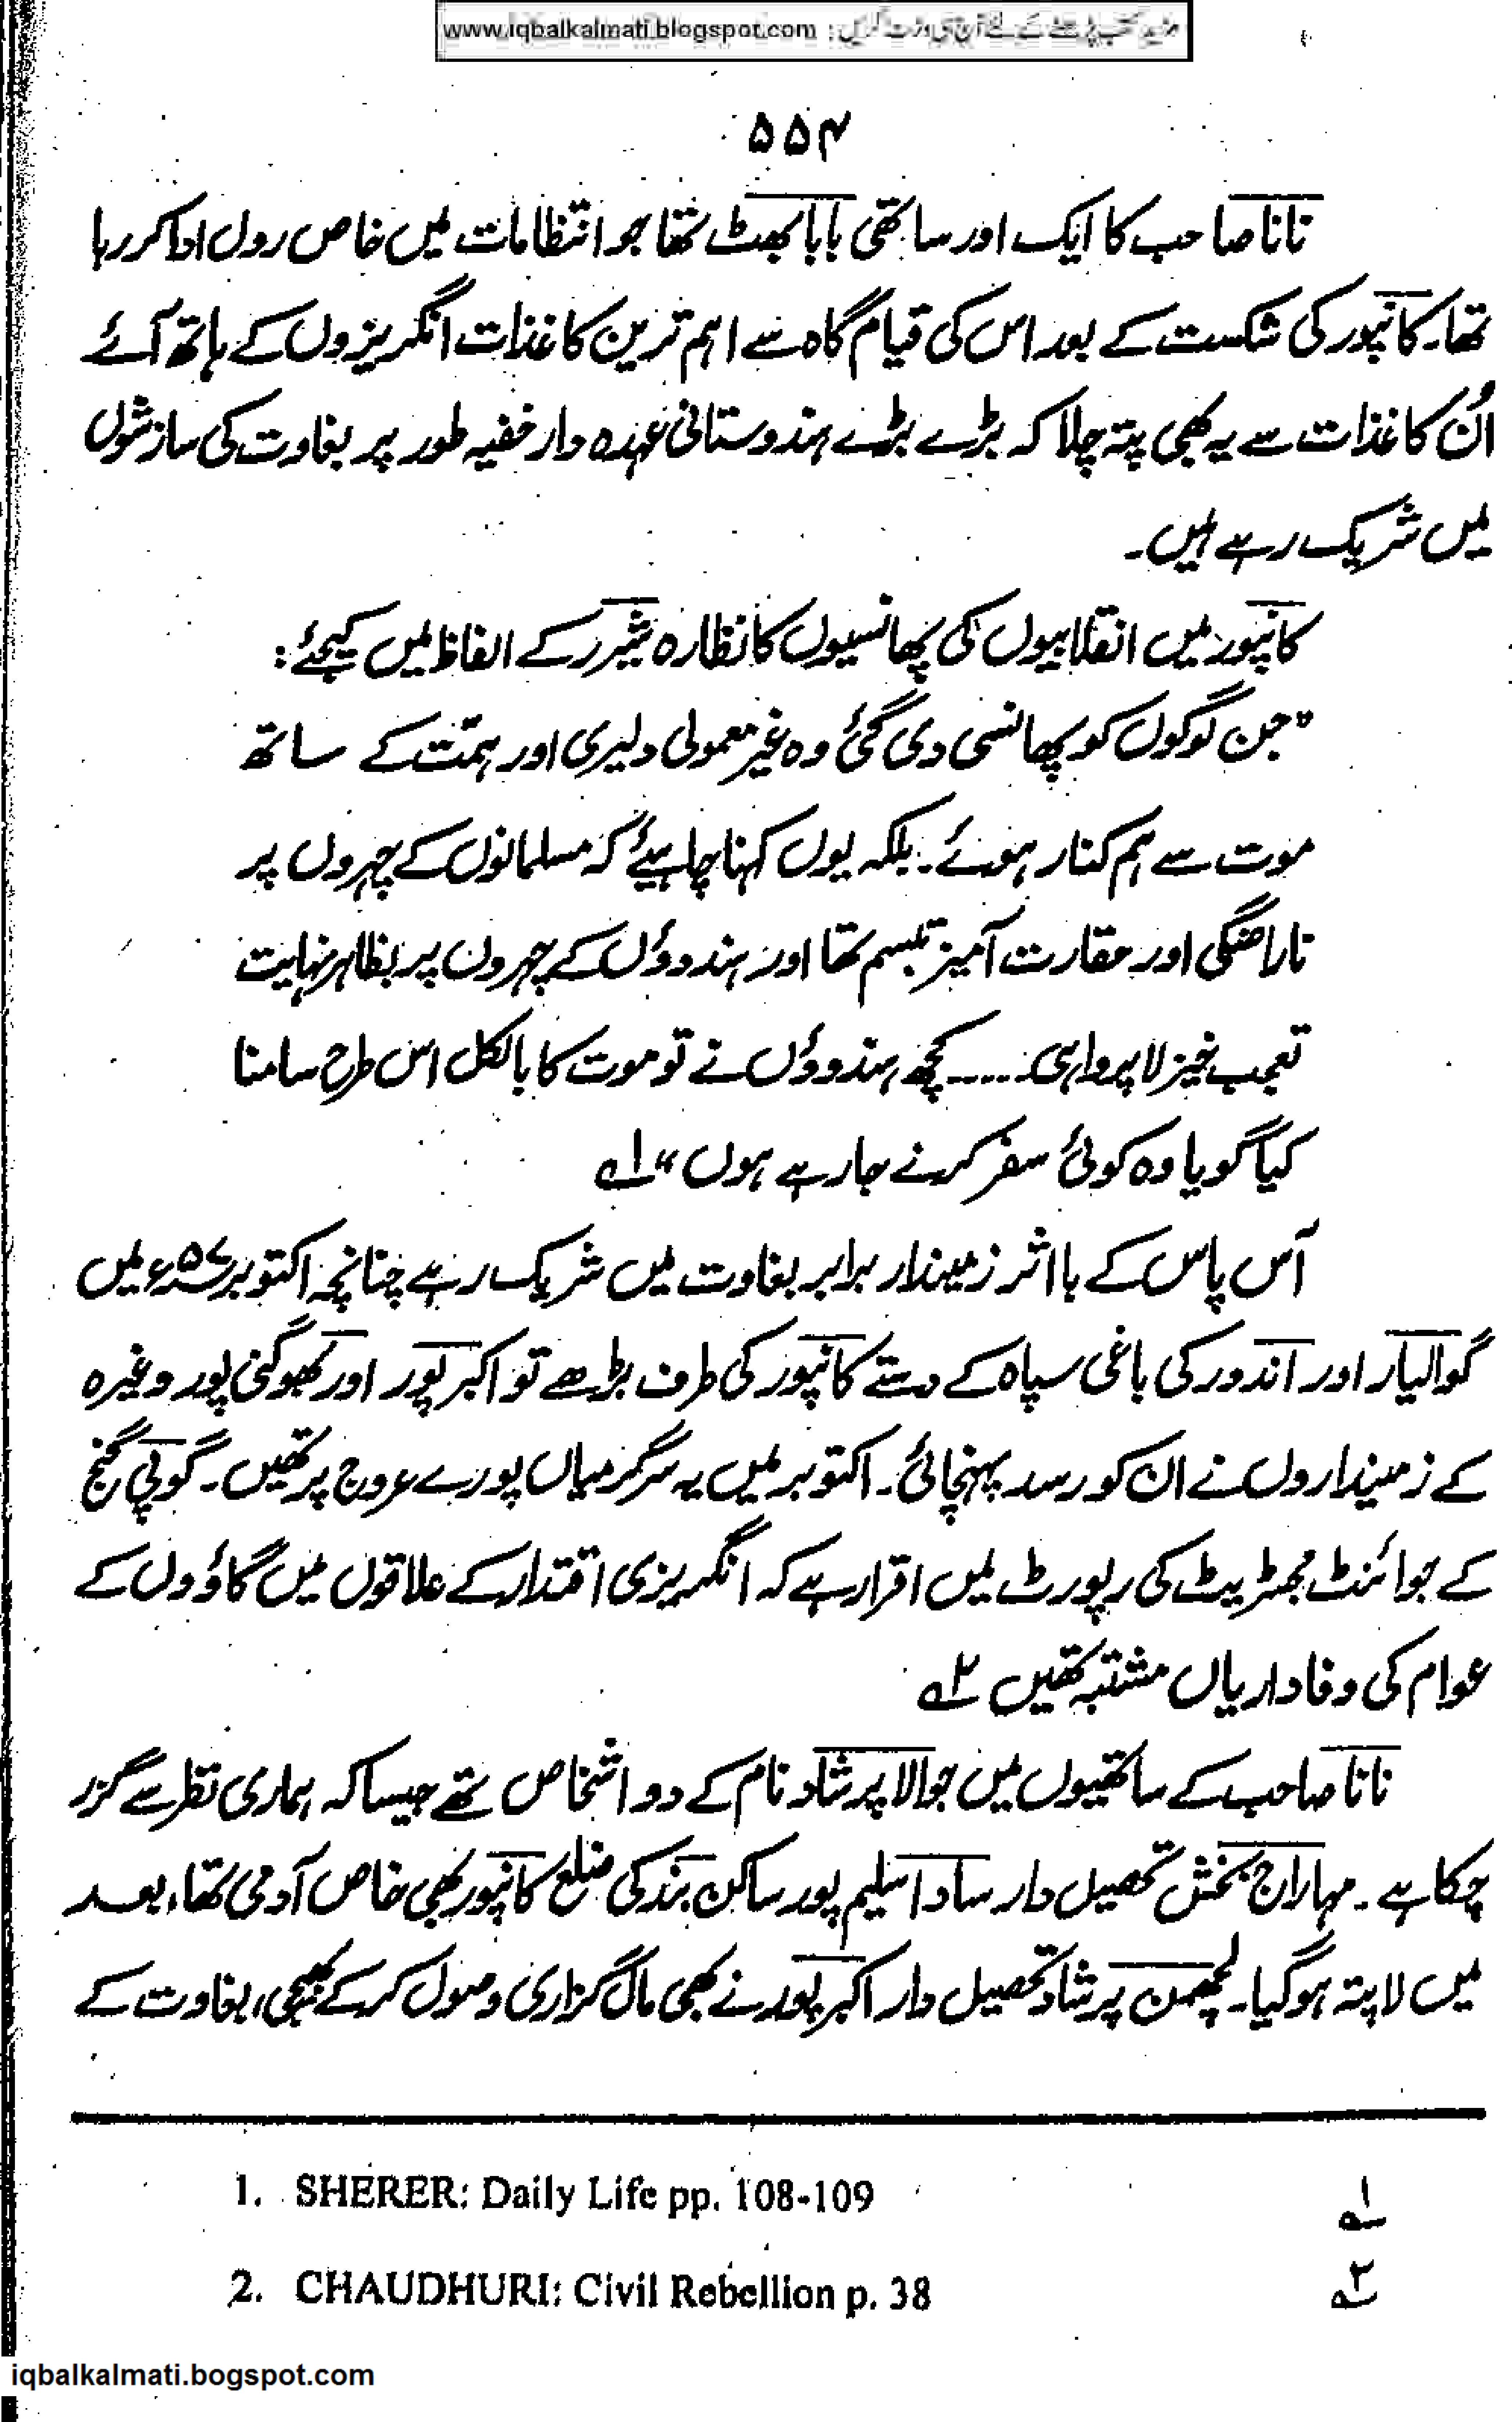 مزید کتب پڑھنے کے لئے آج ہی وزٹ کریں : www.iqbalkalmati.blogspot.com
۵۵۴
نانا صاحب کا ایک اور ساتھی بابا بھٹ تھا جو انتظامات میں خاص رول ادا کر رہا
تھا۔ کانپور کی شکست کے بعد اس کی قیام گاہ سے اہم ترین کاغذات انگریزوں کے ہاتھ آئے
اُن کاغذات سے یہ بھی پتہ چلا کہ بڑے بڑے ہندوستانی عہدہ دار خفیہ طور پر بغاوت کی سازشوں
میں شریک رہے ہیں۔
کانپور میں انقلابیوں کی پھانسیوں کا نظارہ شیرر کے الفاظ میں کیجئے:
"جن لوگوں کو پھانسی دی گئی وہ غیر معمولی دلیری اور ہمت کے ساتھ
موت سے ہم کنار ہوئے۔ بلکہ یوں کہنا چاہیئے کہ مسلمانوں کے چہروں پر
ناراضگی اور حقارت آمیز تبسم تھا اور ہندوؤں کے چہروں پر بظاہر نہایت
تعجب خیز لا پرواہی ۔۔۔۔۔ کچھ ہندوؤں نے تو موت کا بالکل اس طرح سامنا
کیا گویا وہ کوئی سفر کرنے جا رہے ہوں" ۱ھ
آس پاس کے با اثر زمیندار برابر بغاوت میں شریک رہے چنانچہ اکتوبر ۵۷ء میں
گوالیار اور اندور کی باغی سپاہ کے دستے کانپور کی طرف بڑھے تو اکبر پور اور بھوگنی پور وغیرہ
کے زمینداروں نے ان کو رسد پہنچائی۔ اکتوبر میں یہ سرگرمیاں پورے عروج پر تھیں۔ گوپی گنج
کے جوائنٹ مجسٹریٹ کی رپورٹ میں اقرار ہے کہ انگریزی اقتدار کے علاقوں میں گاؤوں کے
عوام کی وفاداریاں مشتبہ تھیں ۲ھ
نانا صاحب کے ساتھیوں میں جوالا پرشاد نام کے دو اشخاص تھے جیسا کہ ہماری نظر سے گزر
چکا ہے۔ مہاراج بخش تحصیل دار سادا سلیم پور ساکن بندکی ضلع کانپور بھی خاص آدمی تھا، بعد
میں لا پتہ ہو گیا۔ لچھمن پرشاد تحصیل دار اکبر پور نے بھی مال گزاری وصول کر کے بھیجی، بغاوت کے
1. SHERER: Daily Life pp. 108-109 ۱ھ
2. CHAUDHURI: Civil Rebellion p. 38 ۲ھ
iqbalkalmati.bogspot.com